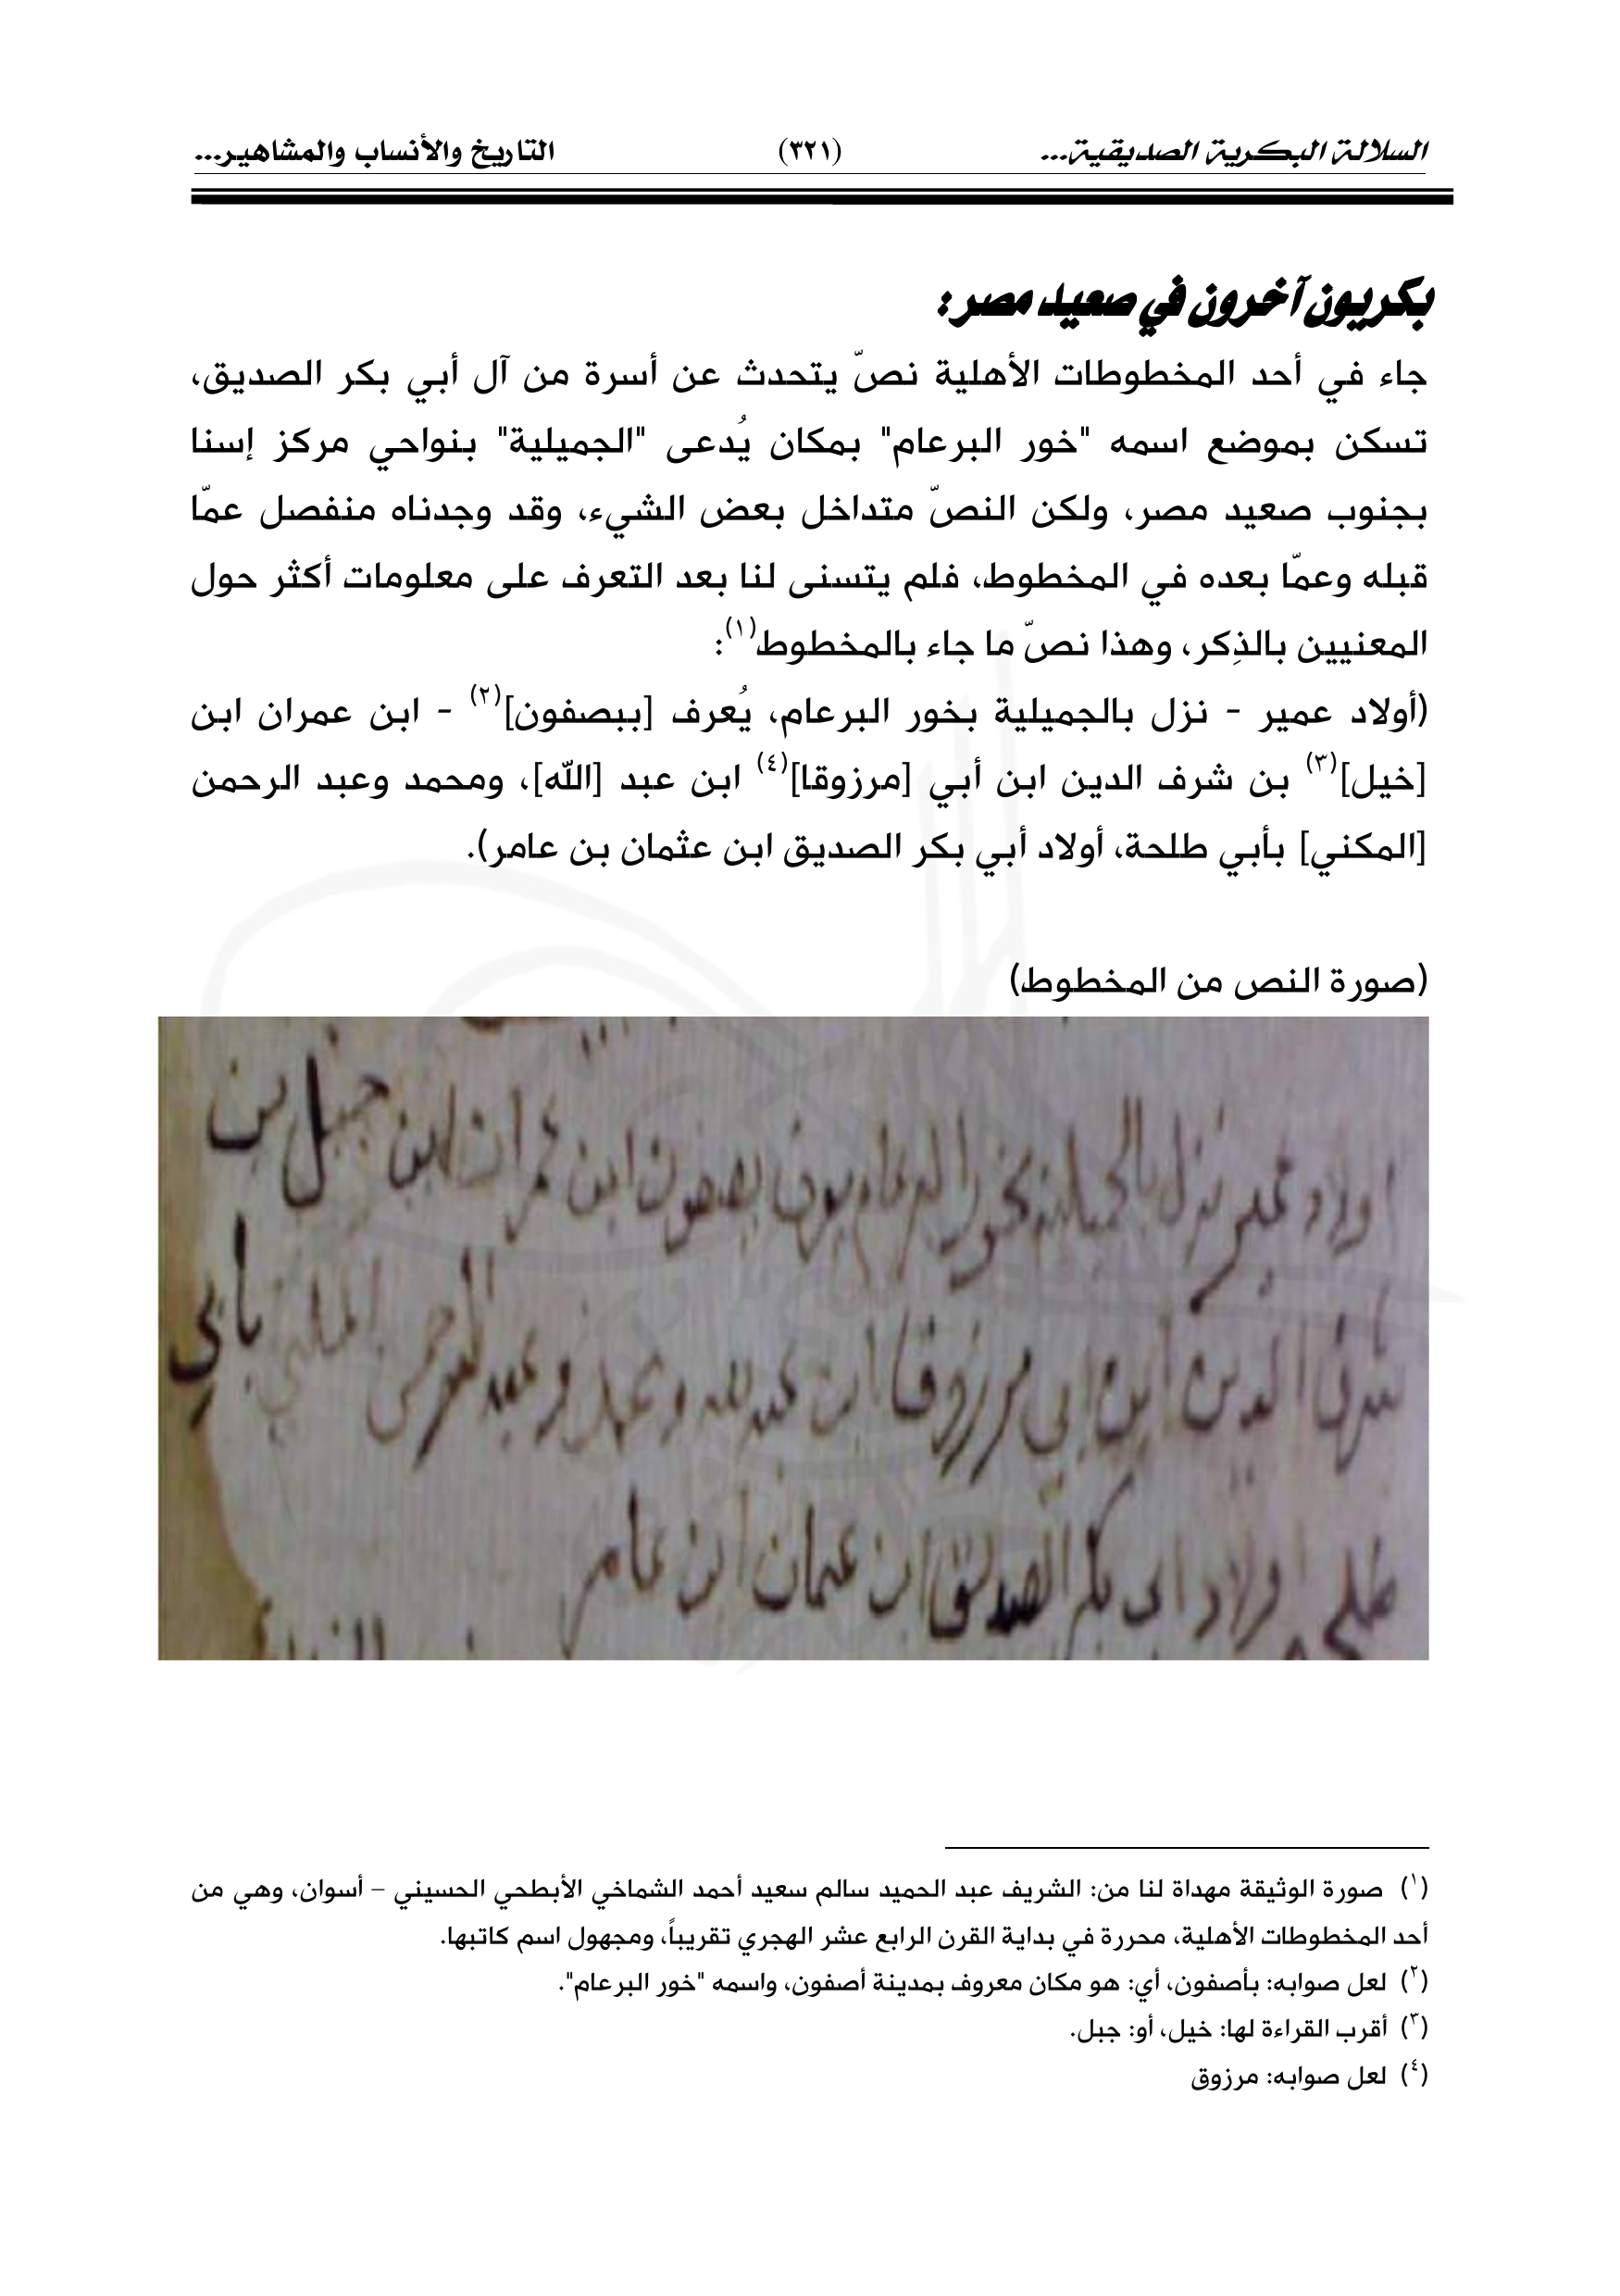 السلالة البكرية الصديقية... (٣٢١) التاريخ والأنساب والمشاهير...
بكريون آخرون في صعيد مصر:
جاء في أحد المخطوطات الأهلية نصّ يتحدث عن أسرة من آل أبي بكر الصديق،
تسكن بموضع اسمه "خور البرعام" بمكان يُدعى "الجميلية" بنواحي مركز إسنا
بجنوب صعيد مصر، ولكن النصّ متداخل بعض الشيء، وقد وجدناه منفصل عمّا
قبله وعمّا بعده في المخطوط، فلم يتسنى لنا بعد التعرف على معلومات أكثر حول
المعنيين بالذِكر، وهذا نصّ ما جاء بالمخطوط(١):
(أولاد عمير - نزل بالجميلية بخور البرعام، يُعرف [ببصفون](٢) - ابن عمران ابن
[خيل](٣) بن شرف الدين ابن أبي [مرزوقا](٤) ابن عبد [الله]، ومحمد وعبد الرحمن
[المكني] بأبي طلحة، أولاد أبي بكر الصديق ابن عثمان بن عامر).
(صورة النص من المخطوط)
اولاد عمير نزل بالجميلية بخور البرعام يعرف بصفون ابن عمران ابن جبل بن
شرف الدين ابن ابي مرزوقا ابن عبد الله ومحمد وعبد الرحمن بابي
طلحه اولاد ابي بكر الصديق ابن عثمان ابن عامر
(١) صورة الوثيقة مهداة لنا من: الشريف عبد الحميد سالم سعيد أحمد الشماخي الأبطحي الحسيني – أسوان، وهي من
أحد المخطوطات الأهلية، محررة في بداية القرن الرابع عشر الهجري تقريباً، ومجهول اسم كاتبها.
(٢) لعل صوابه: بأصفون، أي: هو مكان معروف بمدينة أصفون، واسمه "خور البرعام".
(٣) أقرب القراءة لها: خيل، أو: جبل.
(٤) لعل صوابه: مرزوق